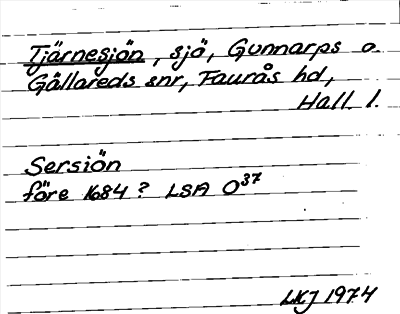 Tjärnesjön, sjö, Gunnarps o
Gällareds snr, Faurås hd,
Hall. l.
Sersiön
före 1684? LSA O37
LKJ 1974